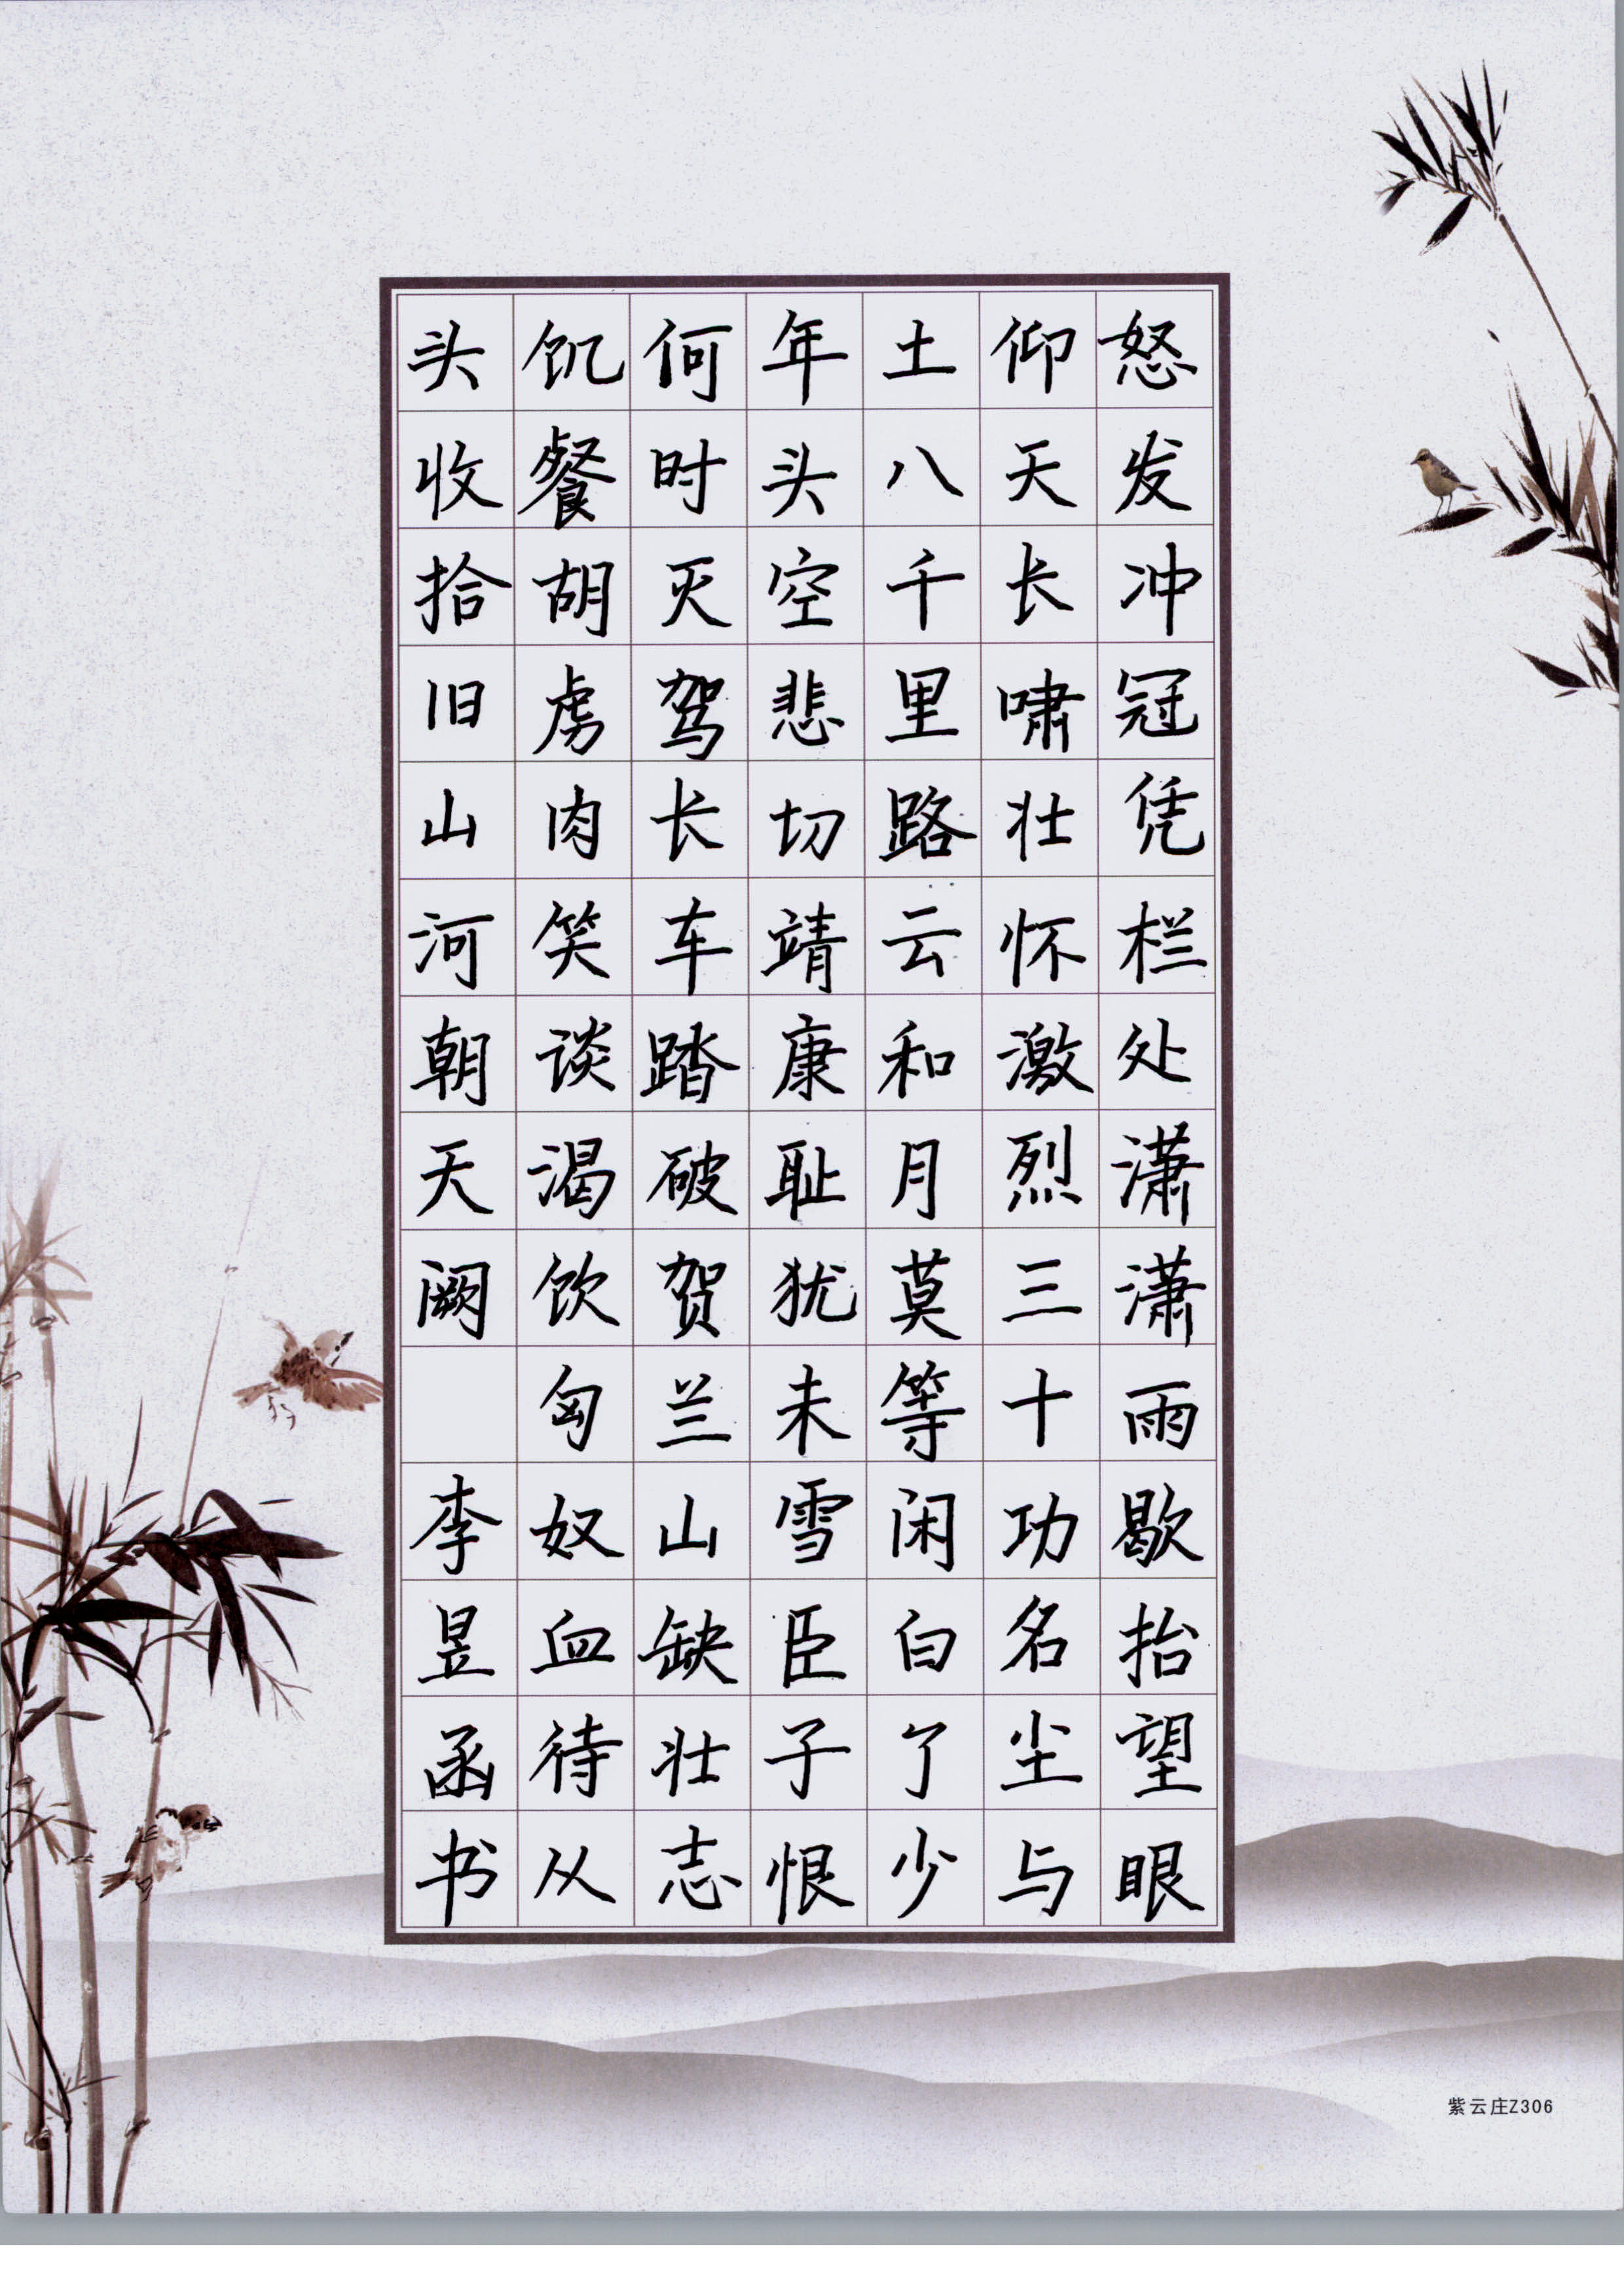 怒发冲冠凭栏处潇潇雨歇抬望眼
仰天长啸壮怀激烈三十功名尘与
土八千里路云和月莫等闲白了少
年头空悲切靖康耻犹未雪臣子恨
何时灭驾长车踏破贺兰山缺壮志
饥餐胡虏肉笑谈渴饮匈奴血待从
头收拾旧山河朝天阙 李昱函书
紫云庄Z306